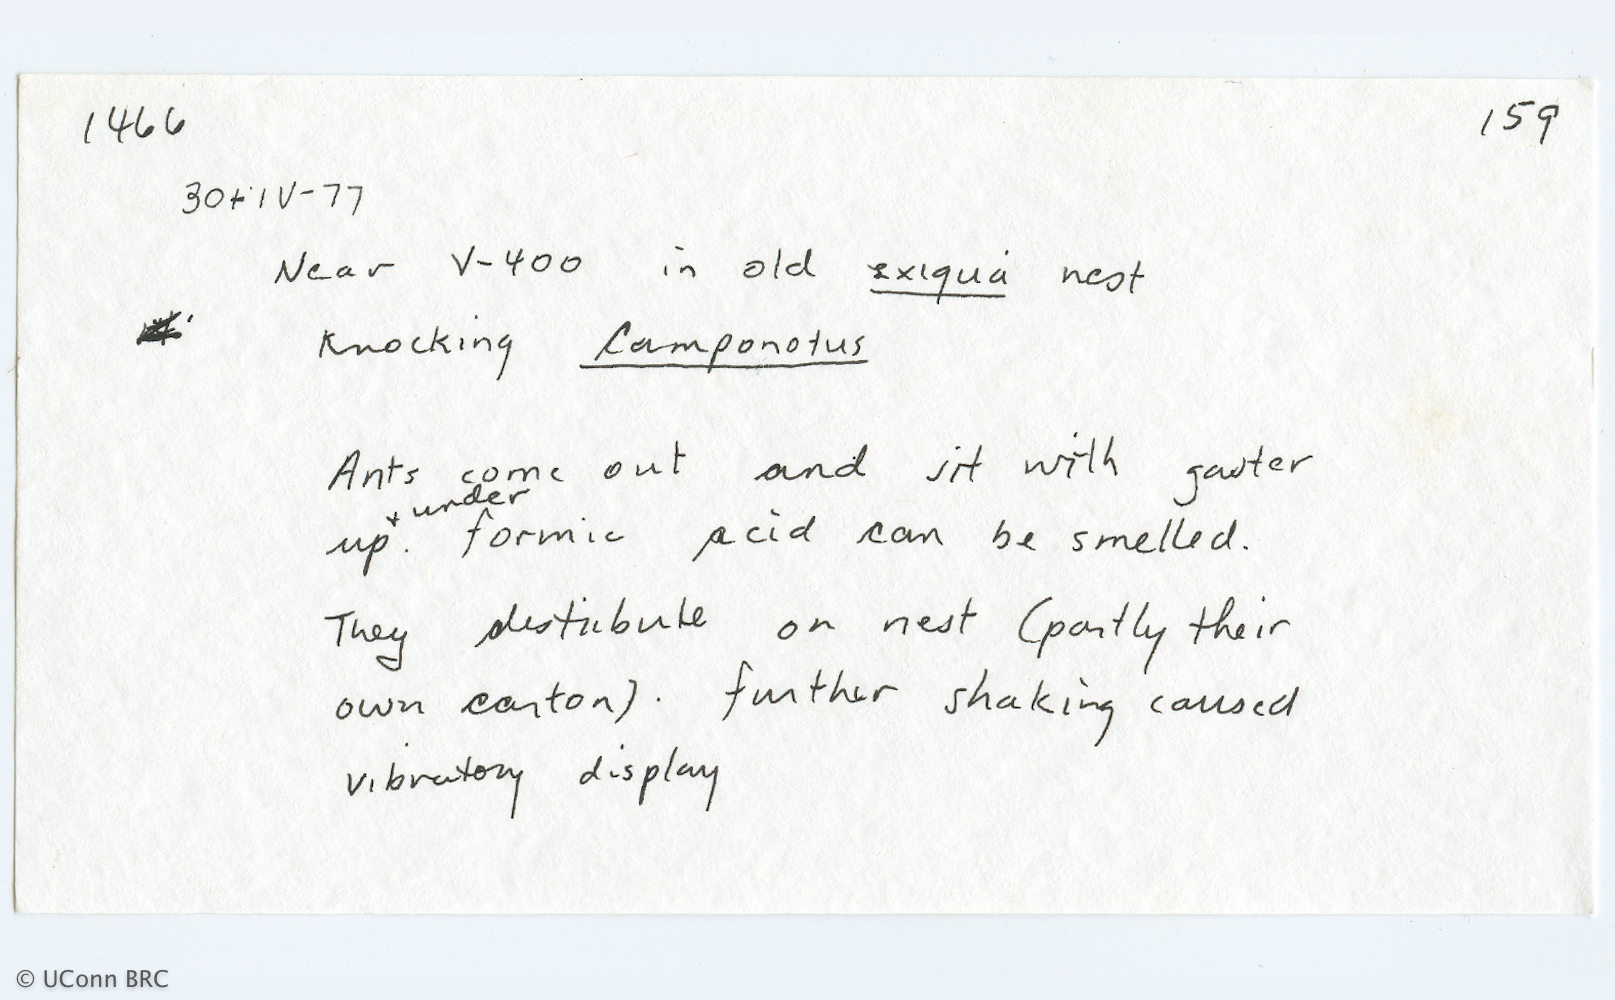 1466 159
30+IV-77
Near V-400 in old exiqua nest
Knocking Camponotus
Ants come out and sit with gaster
+ under
up. formic acid can be smelled.
They distribute on nest (partly their
own carton). further shaking caused
vibratory display
© UConn BRC